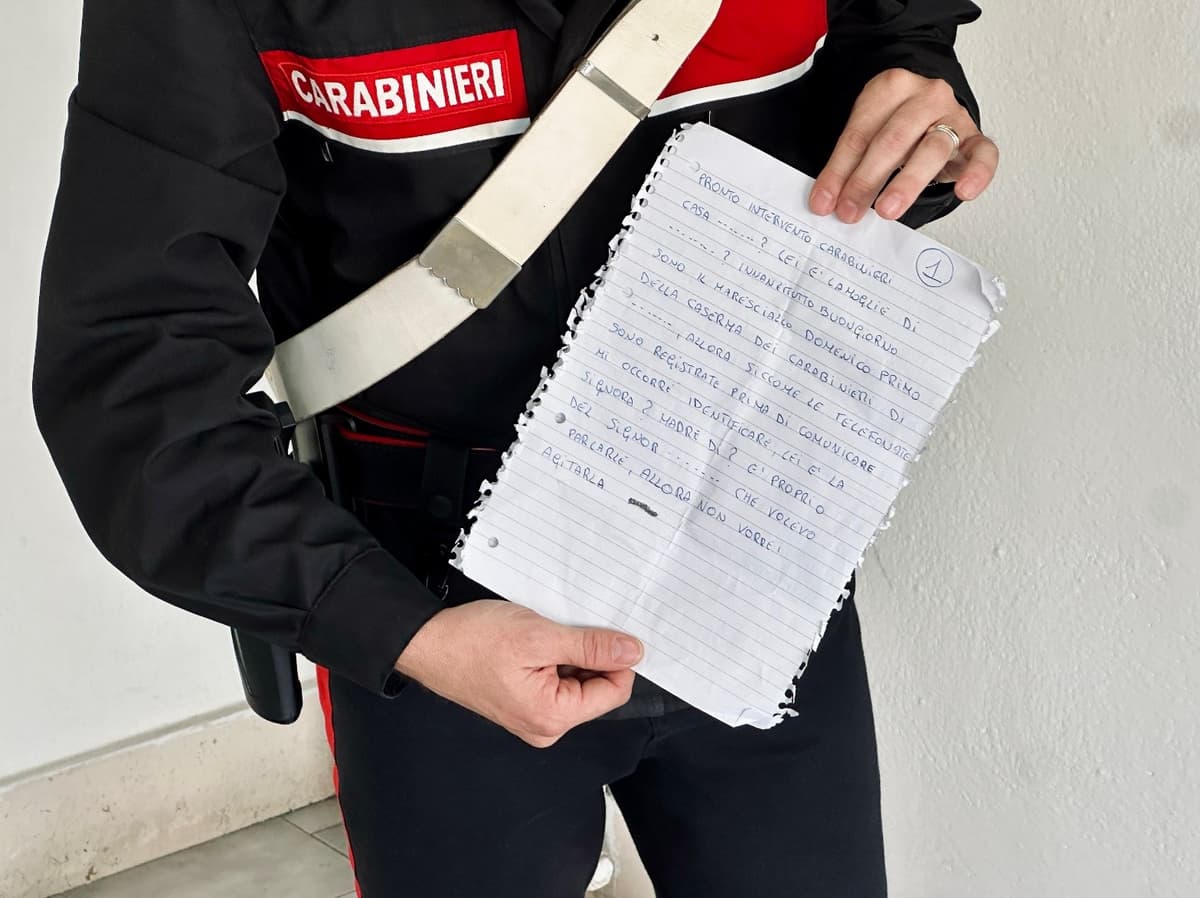 CARABINIERI
1
PRONTO INTERVENTO CARABINIERI
CASA ....... ? LEI E' LA MOGLIE DI
....... ? INNANZITUTTO BUONGIORNO
SONO IL MARESCIALLO DOMENICO PRIMO
DELLA CASERMA DEI CARABINIERI DI
......., ALLORA SICCOME LE TELEFONATE
SONO REGISTRATE PRIMA DI COMUNICARE
MI OCCORRE IDENTIFICARE, LEI E' LA
SIGNORA ? MADRE DI ? E' PROPRIO
DEL SIGNOR ........ CHE VOLEVO
PARLARLE, ALLORA NON VORREI
AGITARLA